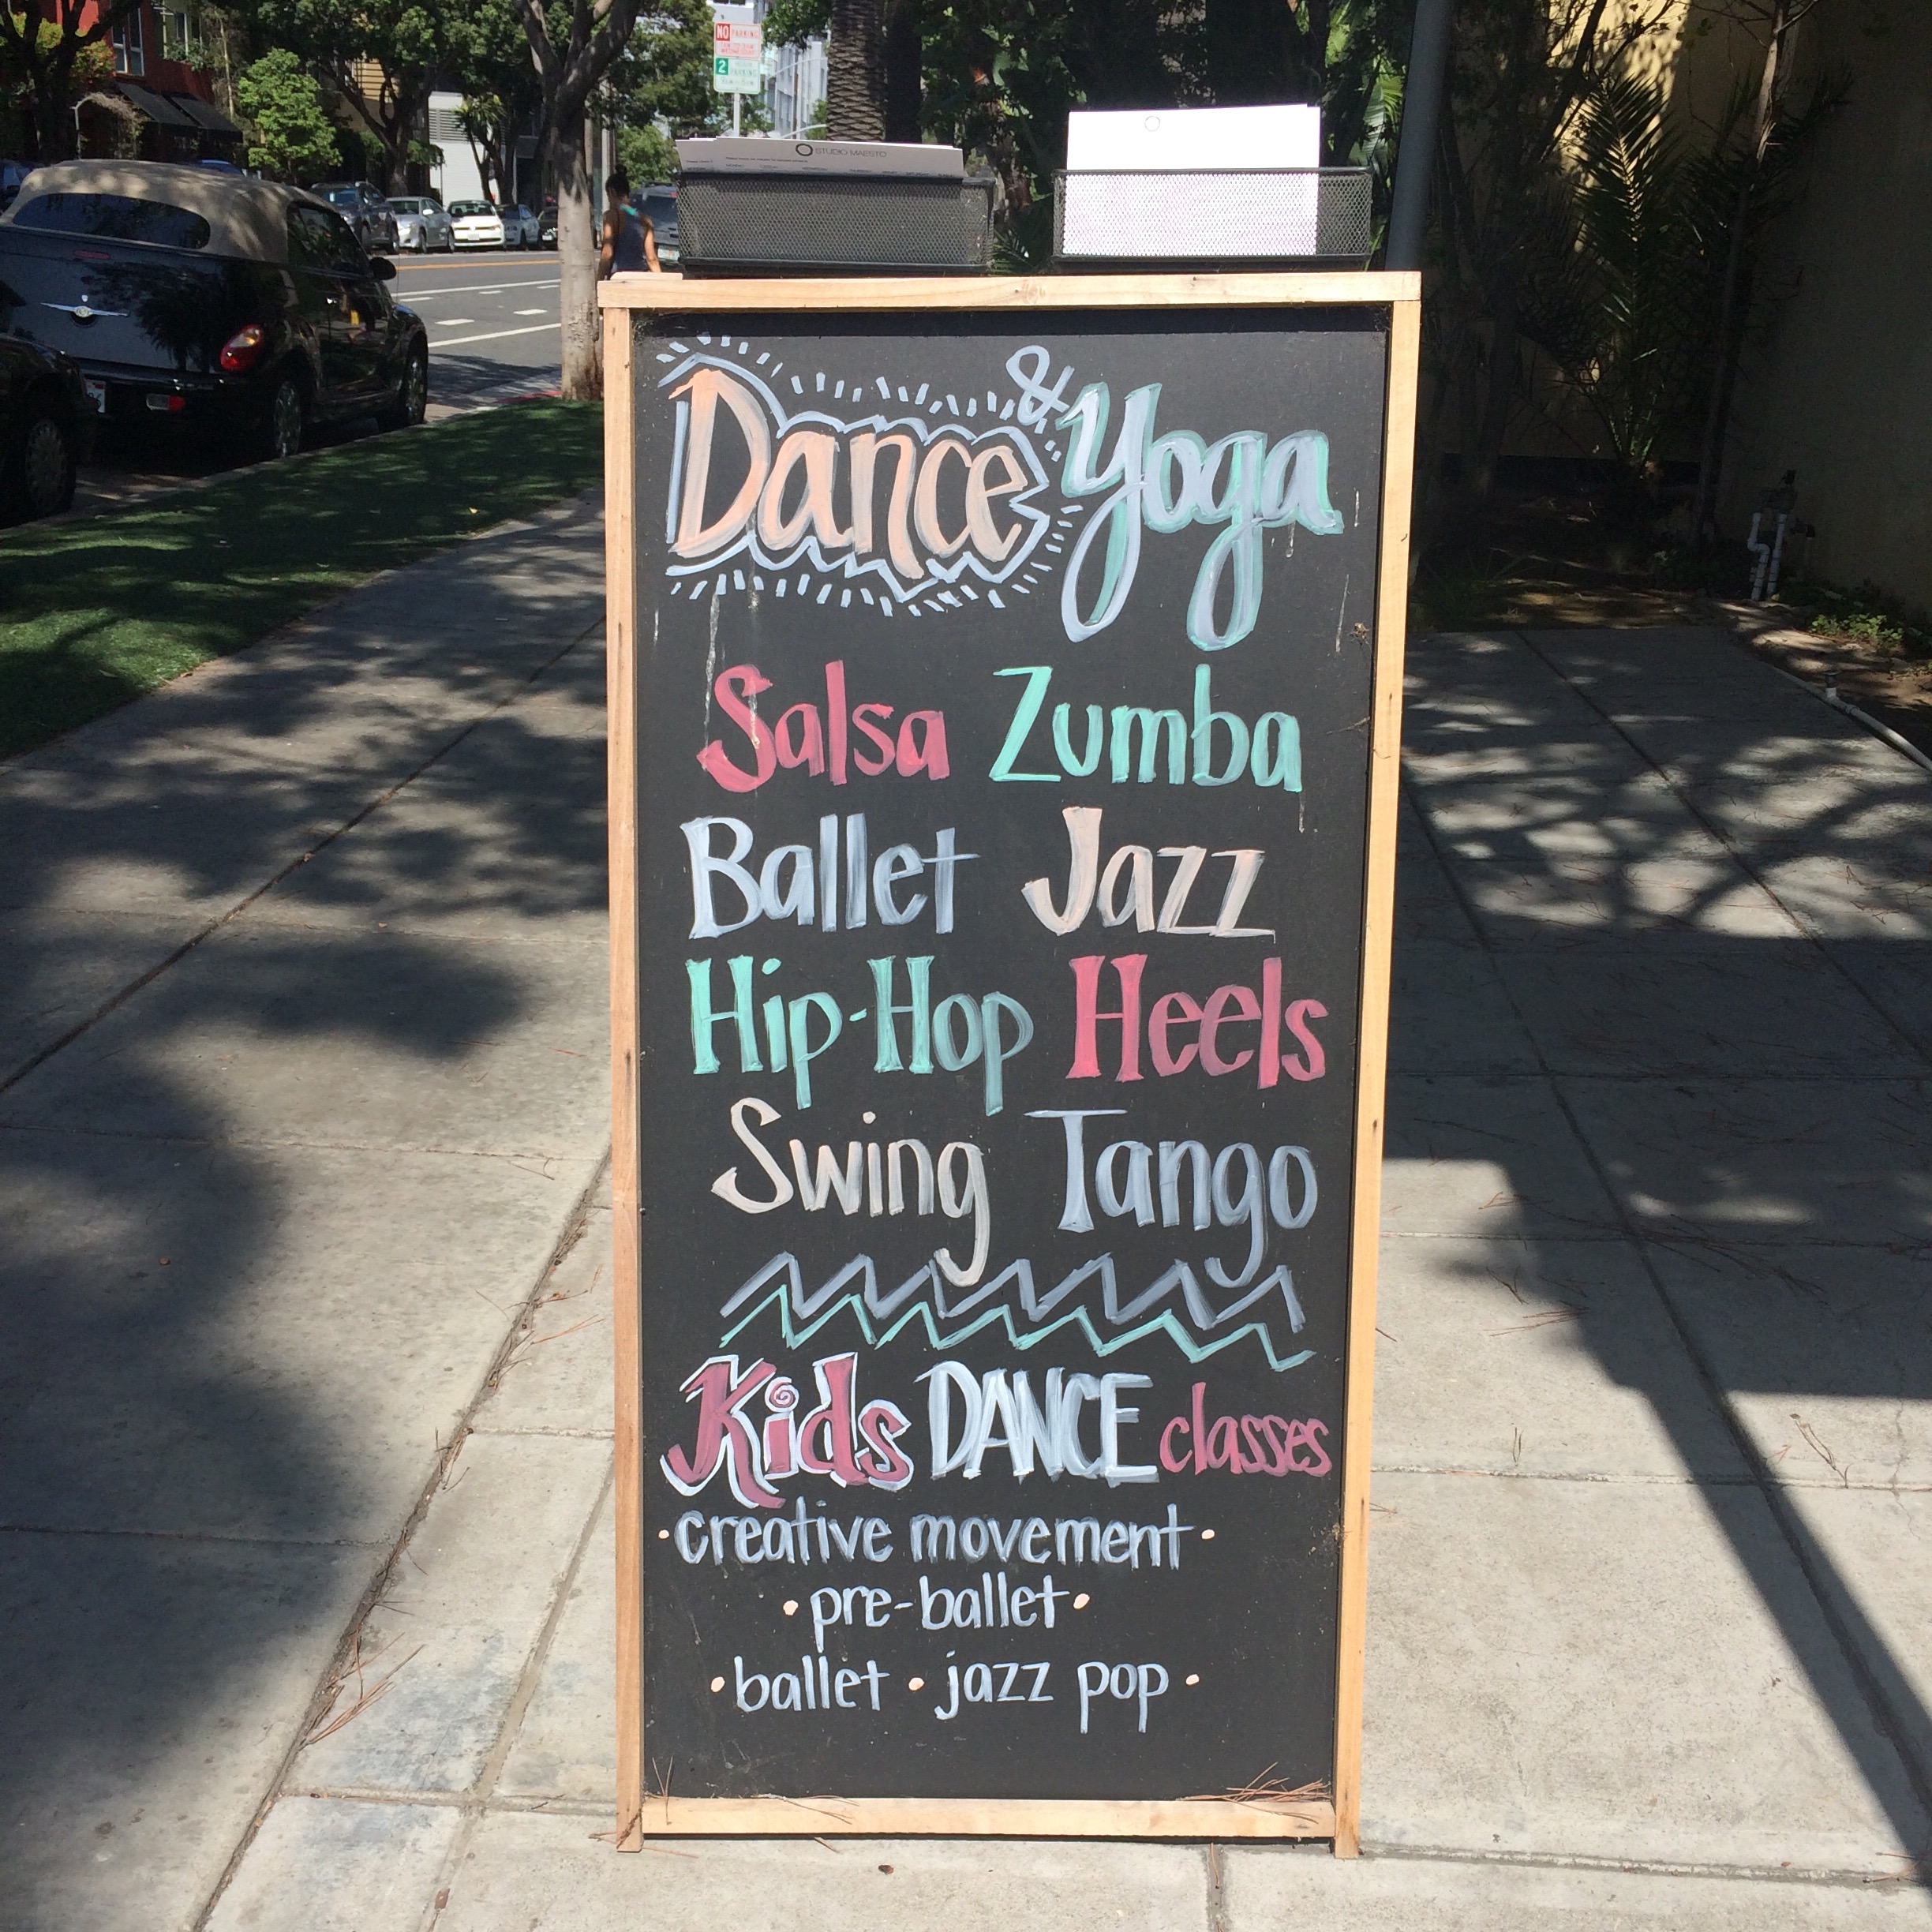 NO PARKING
2 HOUR PARKING
STUDIO MAESTO
Dance & Yoga
Salsa Zumba
Ballet Jazz
Hip-Hop Heels
Swing Tango
Kids DANCE classes
• creative movement •
• pre-ballet •
• ballet • jazz pop •